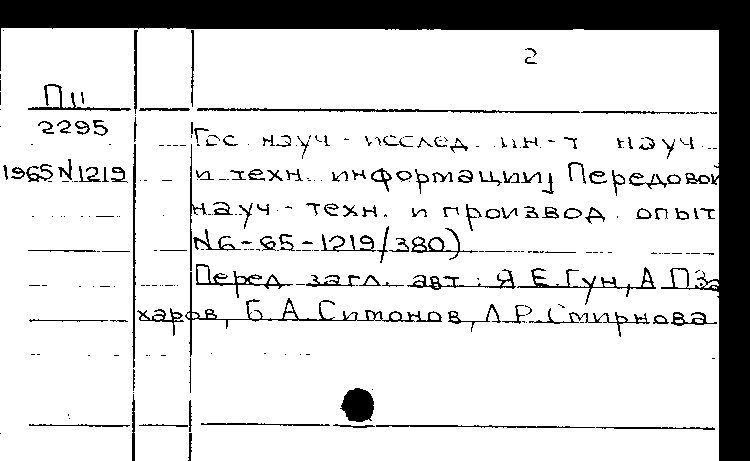 2
П11
2295
Гос. науч - исслед. ин-т науч.
1965 N1219
и техн. информации; Передовой
науч - техн. и производ. опыт
N6-65-1219/380)
Перед загл. авт.: Я.Е.Гун, А.П.За
харов, Б.А.Симонов, Л.Р.Смирнова